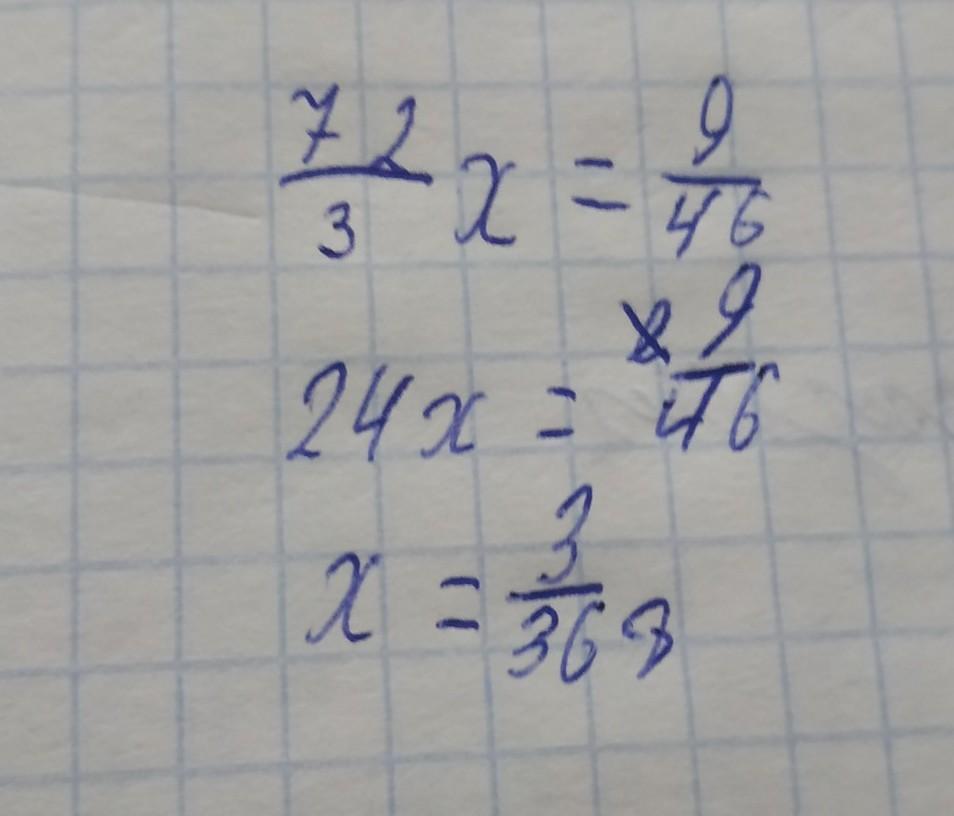 72/3 x = 9/46
24x = 9/46
x = 3/368